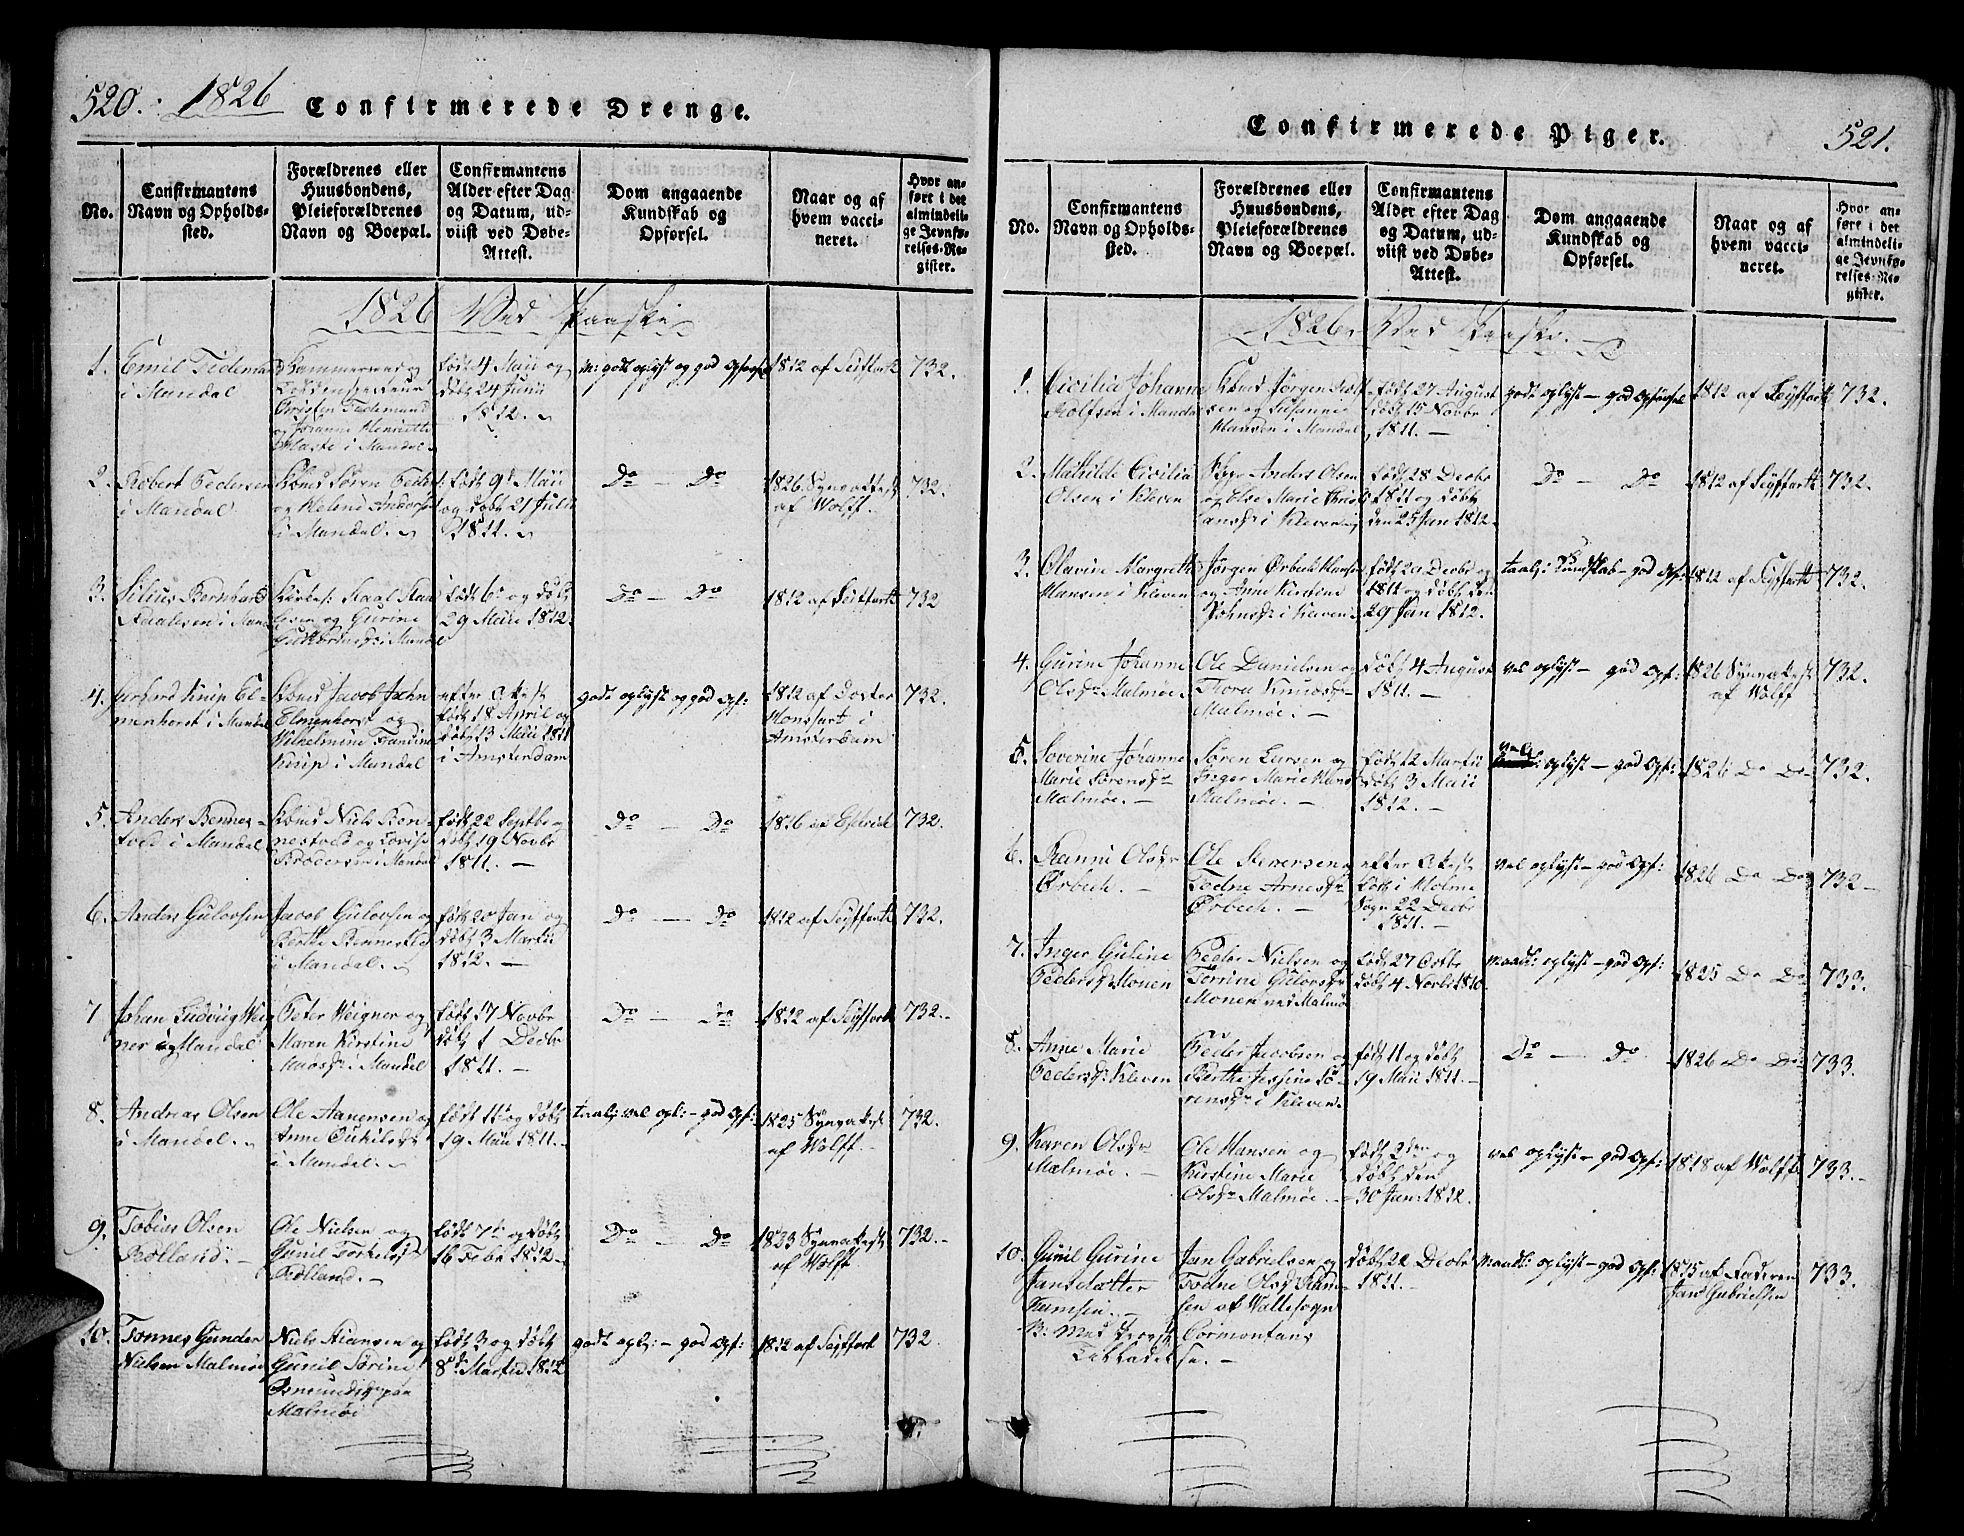 520. 1826 Confirmerede Drenge.
No.
Confirmantens
Navn og Opholds-
sted.
Forældrenes eller
Huusbondens,
Pleieforældrenes
Navn og Boepæl.
Confirmantens
Alder efter Dag
og Datum, ud-
viist ved Døbe-
Attest.
Dom angaaende
Kundskab og
Opførsel.
Naar og af
hvem vacci-
neret.
Hvor an-
ført i det
almindeli-
ge Jevnfø-
relses-Re-
gister.
1826 Ved Paaske
1.
Emil Tidemand
i Mandal
Christen Tidemand
og Johanne Henriette
i Mandal
født 4 Maii og
døbt 24 Junii
1812.
m: godt oplyst og god Opførsel
1812 af Seiffarth
732.
2.
Robert Pedersen
i Mandal
Søren Peder
og Helene Anders
i Mandal.
født 9d Maii
og døbt 21 Julii
1811.
Do — Do
1826 Synsattest
af Wolff.
732.
3.
Silius Bernhard
Staalesen i Man
Staal Staa
lesen og Gurine
Guttormsd: i Mandal
født 6t og døbt
29 Maii 1812.
Do — Do
1812 af Seiffarth
732
4.
Gerhard Knip El-
menhorst i Mandal
Jacob Jahn
Elmenhorst og
Wilhelmine
Knip i Mandal
efter Attest
født 18 April og
døbt 13 Maii 1811
i Amsterdam
godt oplyst og god Opf:
1812 af Doctor
i
Amsterdam
732.
5.
Anders Bennes-
tved i Mandal
Niels Ben-
nestved og Lovise
Brodersen i Mandal
født 22 Septbr
døbt 19 Novbr
1811. —
Do — Do
732.
6.
Anders Gulovsen
Jacob Gulovsen og
Berthe
i Mandal.
født 20 Jan og
døbt 3 Martii
1812. —
Do — Do
1812 af Seyffarth
732.
7
Johan Ludvig Weg
ner i Mandal
Peter Wegner og
Maren Kirstine
i Mandal
født 17 Novbr
døbt 1 Decbr
1811. —
Do — Do
1812 af Seyffarth
732.-
8.
Andreas Olsen
i Mandal.
Ole Aanensen og
Anne
i Mandal.
født 11t og døbt
19 Maii 1811.-
taalg: vel opl: - god Opf:
1825 Synsattest
af Wolff.-
732.
9.
Tobias Olsen
Ole Nielsen og
Gunil Torkelsdr
født 7t og døbt
16 Febr 1812 -
Do — Do
1823 Synsattest
af Wolff
732.-
10.
Tønnes Gunder
Nielsen Malmøe
Niels og
Gunil Sørine
paa
Malmøe
født 3 og døbt
8de Martii 1812
godt opl: - god Opf:
1812 af Seyffarth
732.
Confirmerede Piger. 521.
No.
Confirmantens
Navn og Opholds-
sted.
Forældrenes eller
Huusbondens,
Pleieforældrenes
Navn og Boepæl.
Confirmantens
Alder efter Dag
og Datum, ud-
viist ved Døbe-
Attest.
Dom angaaende
Kundskab og
Opførsel.
Naar og af
hvem vacci-
neret.
Hvor an-
ført i det
almindeli-
ge Jevnfø-
relses-Re-
gister.
1826. Ved Paaske. —
1.
Cicilia Johanne
Rolfsen i Mandal
Jørgen Rolf
sen og Susanne
Hansen i Mandal
født 27 August
døbt 15 Novbr
1811. —
godt oplyst — god Opførsel
1812 af Seyffarth
732.
2.
Mathilde Cicilia
Olsen i Kleven
Anders Olsen
og Else Marie Chris
i Kleven
født 28 Decbr
1811 og døbt
den 25 Jan 1812.
Do — Do
1812 af Seyffarth
732.
3.
Olavine Margrethe
Hansen i Kleven
Jørgen Ørbech Hansen
og Anne Kirstine
i Kleven
født 20 Decbr
1811 og døbt den
29 Jan 1812.
taalg: Kundskab - god Opf:
1812 af Seyffarth
732.
4.
Gurine Johanne
Olsdr Malmøe
Ole Danielsen og
Thora Knudsdr
Malmøe. —
døbt 4 August
1811. —
vel oplyst — god Opf:
1826 Synsattest
af Wolff
732.
5.
Severine Johanne
Marie Sørensdr
Malmøe. —
Søren Larsen og
Inger Marie Hans
Malmøe. —
født 12 Martii
døbt 3 Maii
1812. —
vel
oplyst — god Opf:
1826 Do Do
732.
6.
Olsdr
Ørbech. —
Ole og
Todne Arnesdr
Ørbech. —
efter Attest
døbt i Holme
Sogn 22 Decbr
1811. —
vel oplyst — god Opf:
1826 Do Do
732 —
7.
Inger Guline
Pedersdr Monen
Peder Nielsen og
Gulovsdr
Monen ved Malmøe
født 27 Octbr
døbt 4 Novbr 1810
maadl: oplyst — god Opf:
1825 Do Do
733.
8.
Anne Marie
Pedersdr Kleven
Peder Jacobsen og
Berthe Jessine Sø-
rensdr i Kleven.
født 11 og døbt
19 Maii 1811.-
Do — Do
1826 Do Do
733.
9.
Karen Olsdr
Malmøe. —
Ole Hansen og
Kirstine Marie
Olsdr Malmøe. —
født 2den og
døbt den
30 Jan: 1812.
vel oplyst — god Opf:
1818 af Wolff
733.-
10.
Gunil Gurine
Jansdatter
— Med
Tilladelse. —
Jan Gabrielsen og
Todne Olsd
sen af Valle Sogn
døbt 22 Decbr
1811. —
maadl: oplyst — god Opf:
af Faderen
Jan Gabrielsen
733.